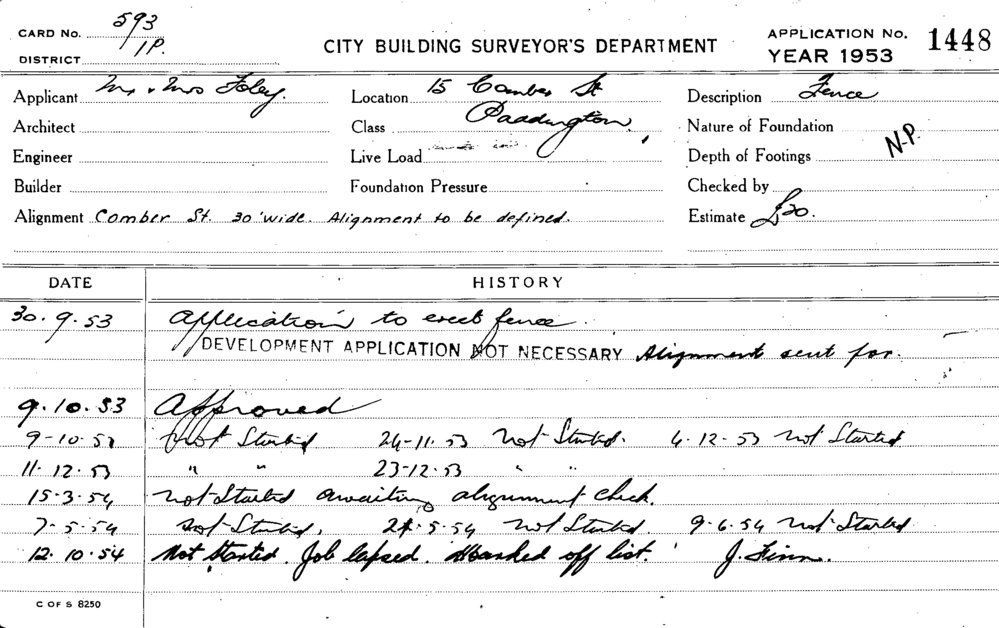 CARD No. 593/1P.
DISTRICT
CITY BUILDING SURVEYOR'S DEPARTMENT
APPLICATION No. 1448
YEAR 1953
Applicant Mr & Mrs Foley.
Location 15 Comber St
Paddington.
Description Fence
Architect
Class
Nature of Foundation
N.P.
Engineer
Live Load
Depth of Footings
Builder
Foundation Pressure
Checked by
Alignment Comber St. 30' wide. Alignment to be defined.
Estimate £20.
DATE HISTORY
30.9.53 Application to erect fence.
DEVELOPMENT APPLICATION NOT NECESSARY Alignment sent for.
9.10.53 Approved
9-10-53 Not Started 24-11-53 Not Started. 4.12.53 Not Started
11.12.53 " " 23-12.53 " "
15.3.54 Not Started awaiting alignment check.
7-5.54 Not Started, 24.5.54 Not Started. 9.6.54 Not Started
12.10.54 Not Started. Job lapsed. Marked off list. J. Finn.
C OF S 8250